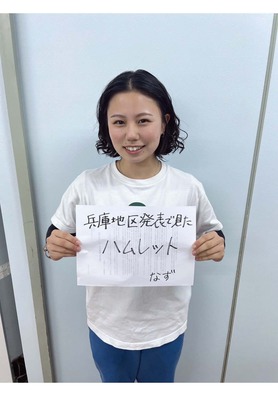 兵庫地区発表で見た
ハムレット
なず